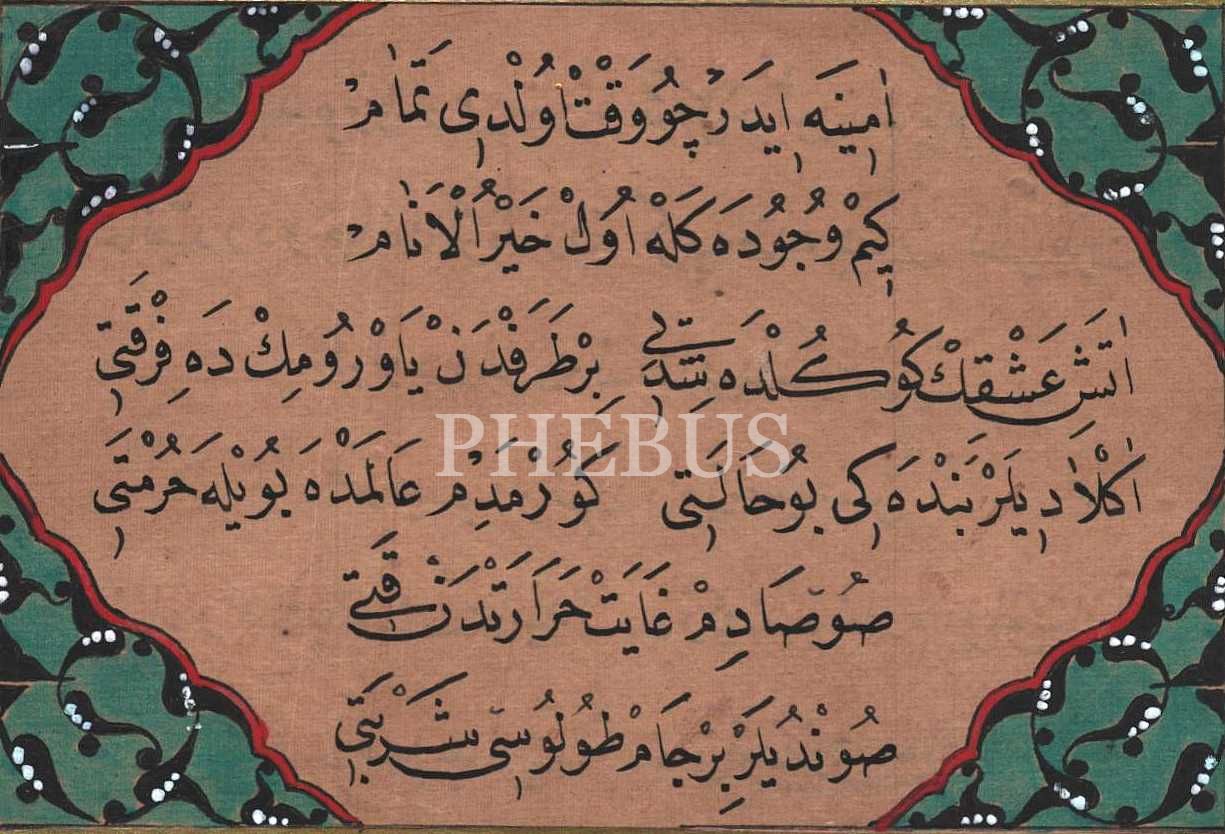 اٰمِینَه اِیدَرْ چُو وَقْتْ اُولْدِی تَمَامْ
كِیمْ وُجُودَه كَلَه اُولْ خَیْرُ الْاَنَامْ
اٰتَشِ عَشْقِكْ كُوكُلْدَه بِتْدِی بِرْ طَرَفْدَنْ یَاوْرُومِكْ دَه فِرْقَتِی
اٰكْلَادِیلَرْ بَنْدَه كِی بُو حَالَتِی كُورْمَدِمْ عَالَمْدَه بُویْلَه حُرْمَتِی
PHEBUS
صُوصَادِمْ غَایَتْ حَرَارَتْدَنْ قَتِی
صُونْدُیلَرْ بِرْ جَامْ طُولُوسِی شَرْبَتِی